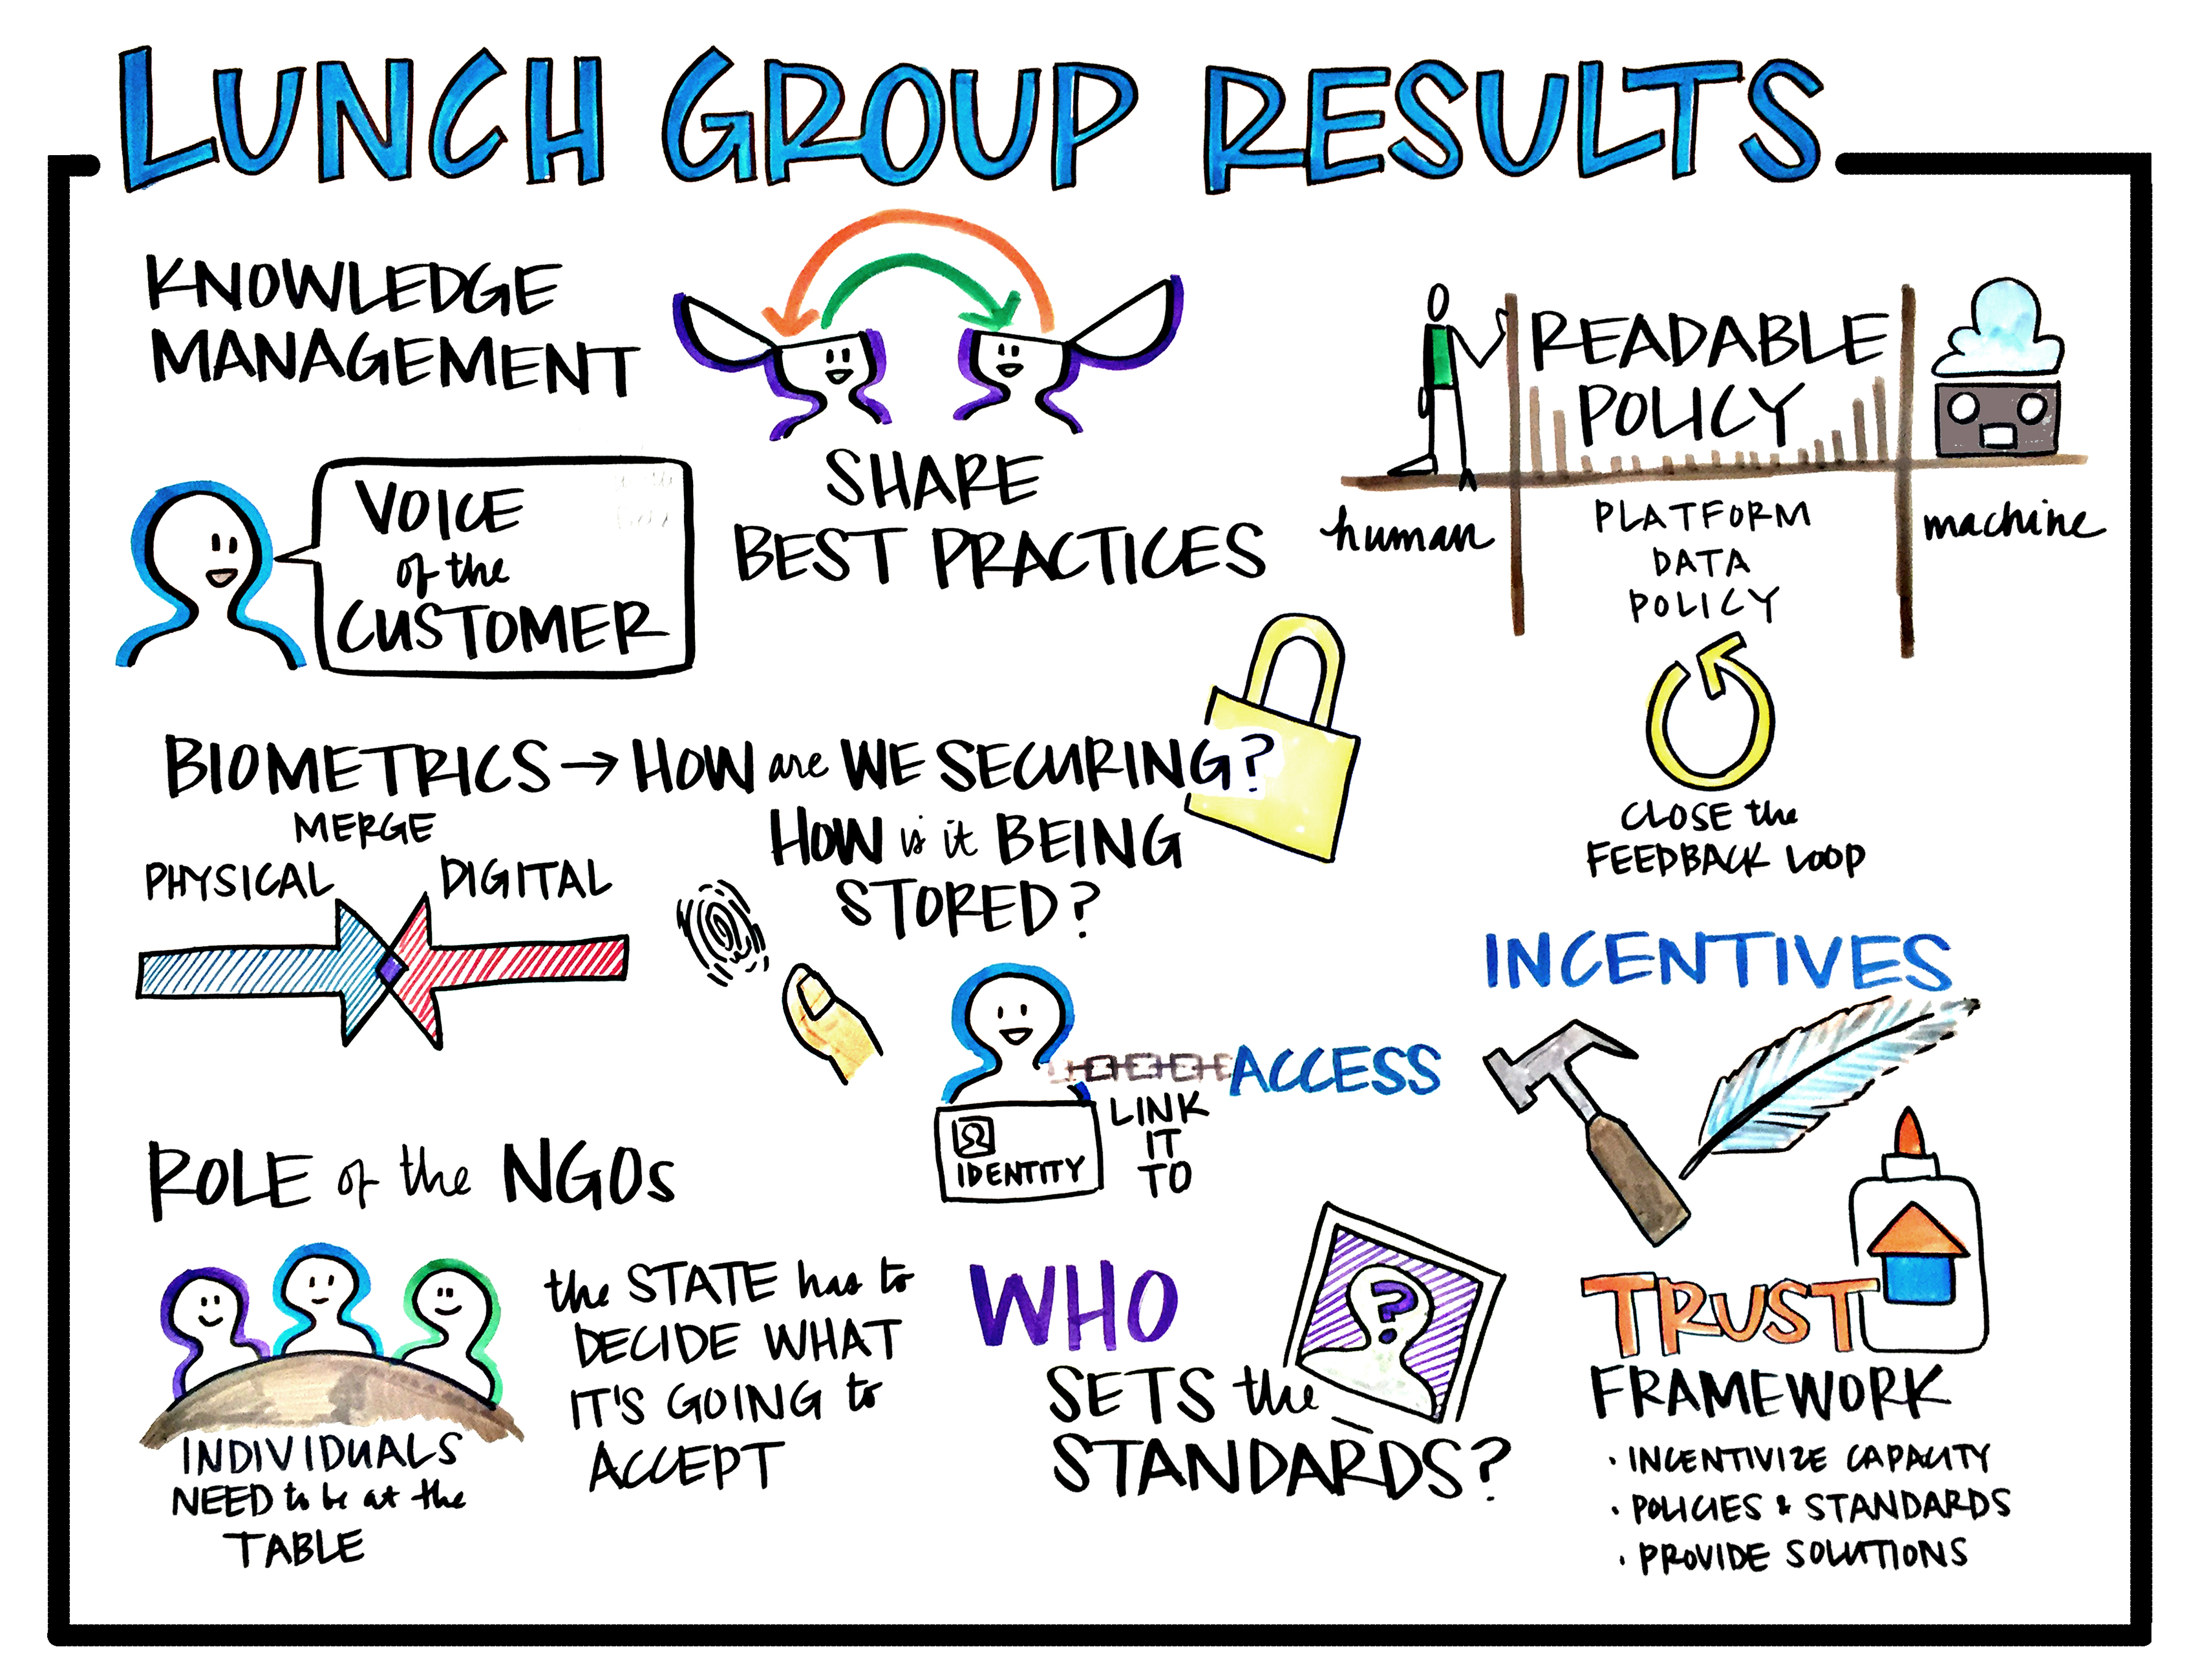 LUNCH GROUP RESULTS
KNOWLEDGE
MANAGEMENT
SHARE
BEST PRACTICES
VOICE
of the
CUSTOMER
READABLE
POLICY
human
PLATFORM
DATA
POLICY
machine
CLOSE the
FEEDBACK LOOP
BIOMETRICS → HOW are WE SECURING?
HOW is it BEING
STORED?
MERGE
PHYSICAL
DIGITAL
ACCESS
LINK
IT
TO
IDENTITY
INCENTIVES
ROLE of the NGOs
INDIVIDUALS
NEED to be at the
TABLE
the STATE has to
DECIDE WHAT
IT'S GOING to
ACCEPT
WHO
SETS the
STANDARDS?
?
TRUST
FRAMEWORK
• INCENTIVIZE CAPACITY
• POLICIES & STANDARDS
• PROVIDE SOLUTIONS